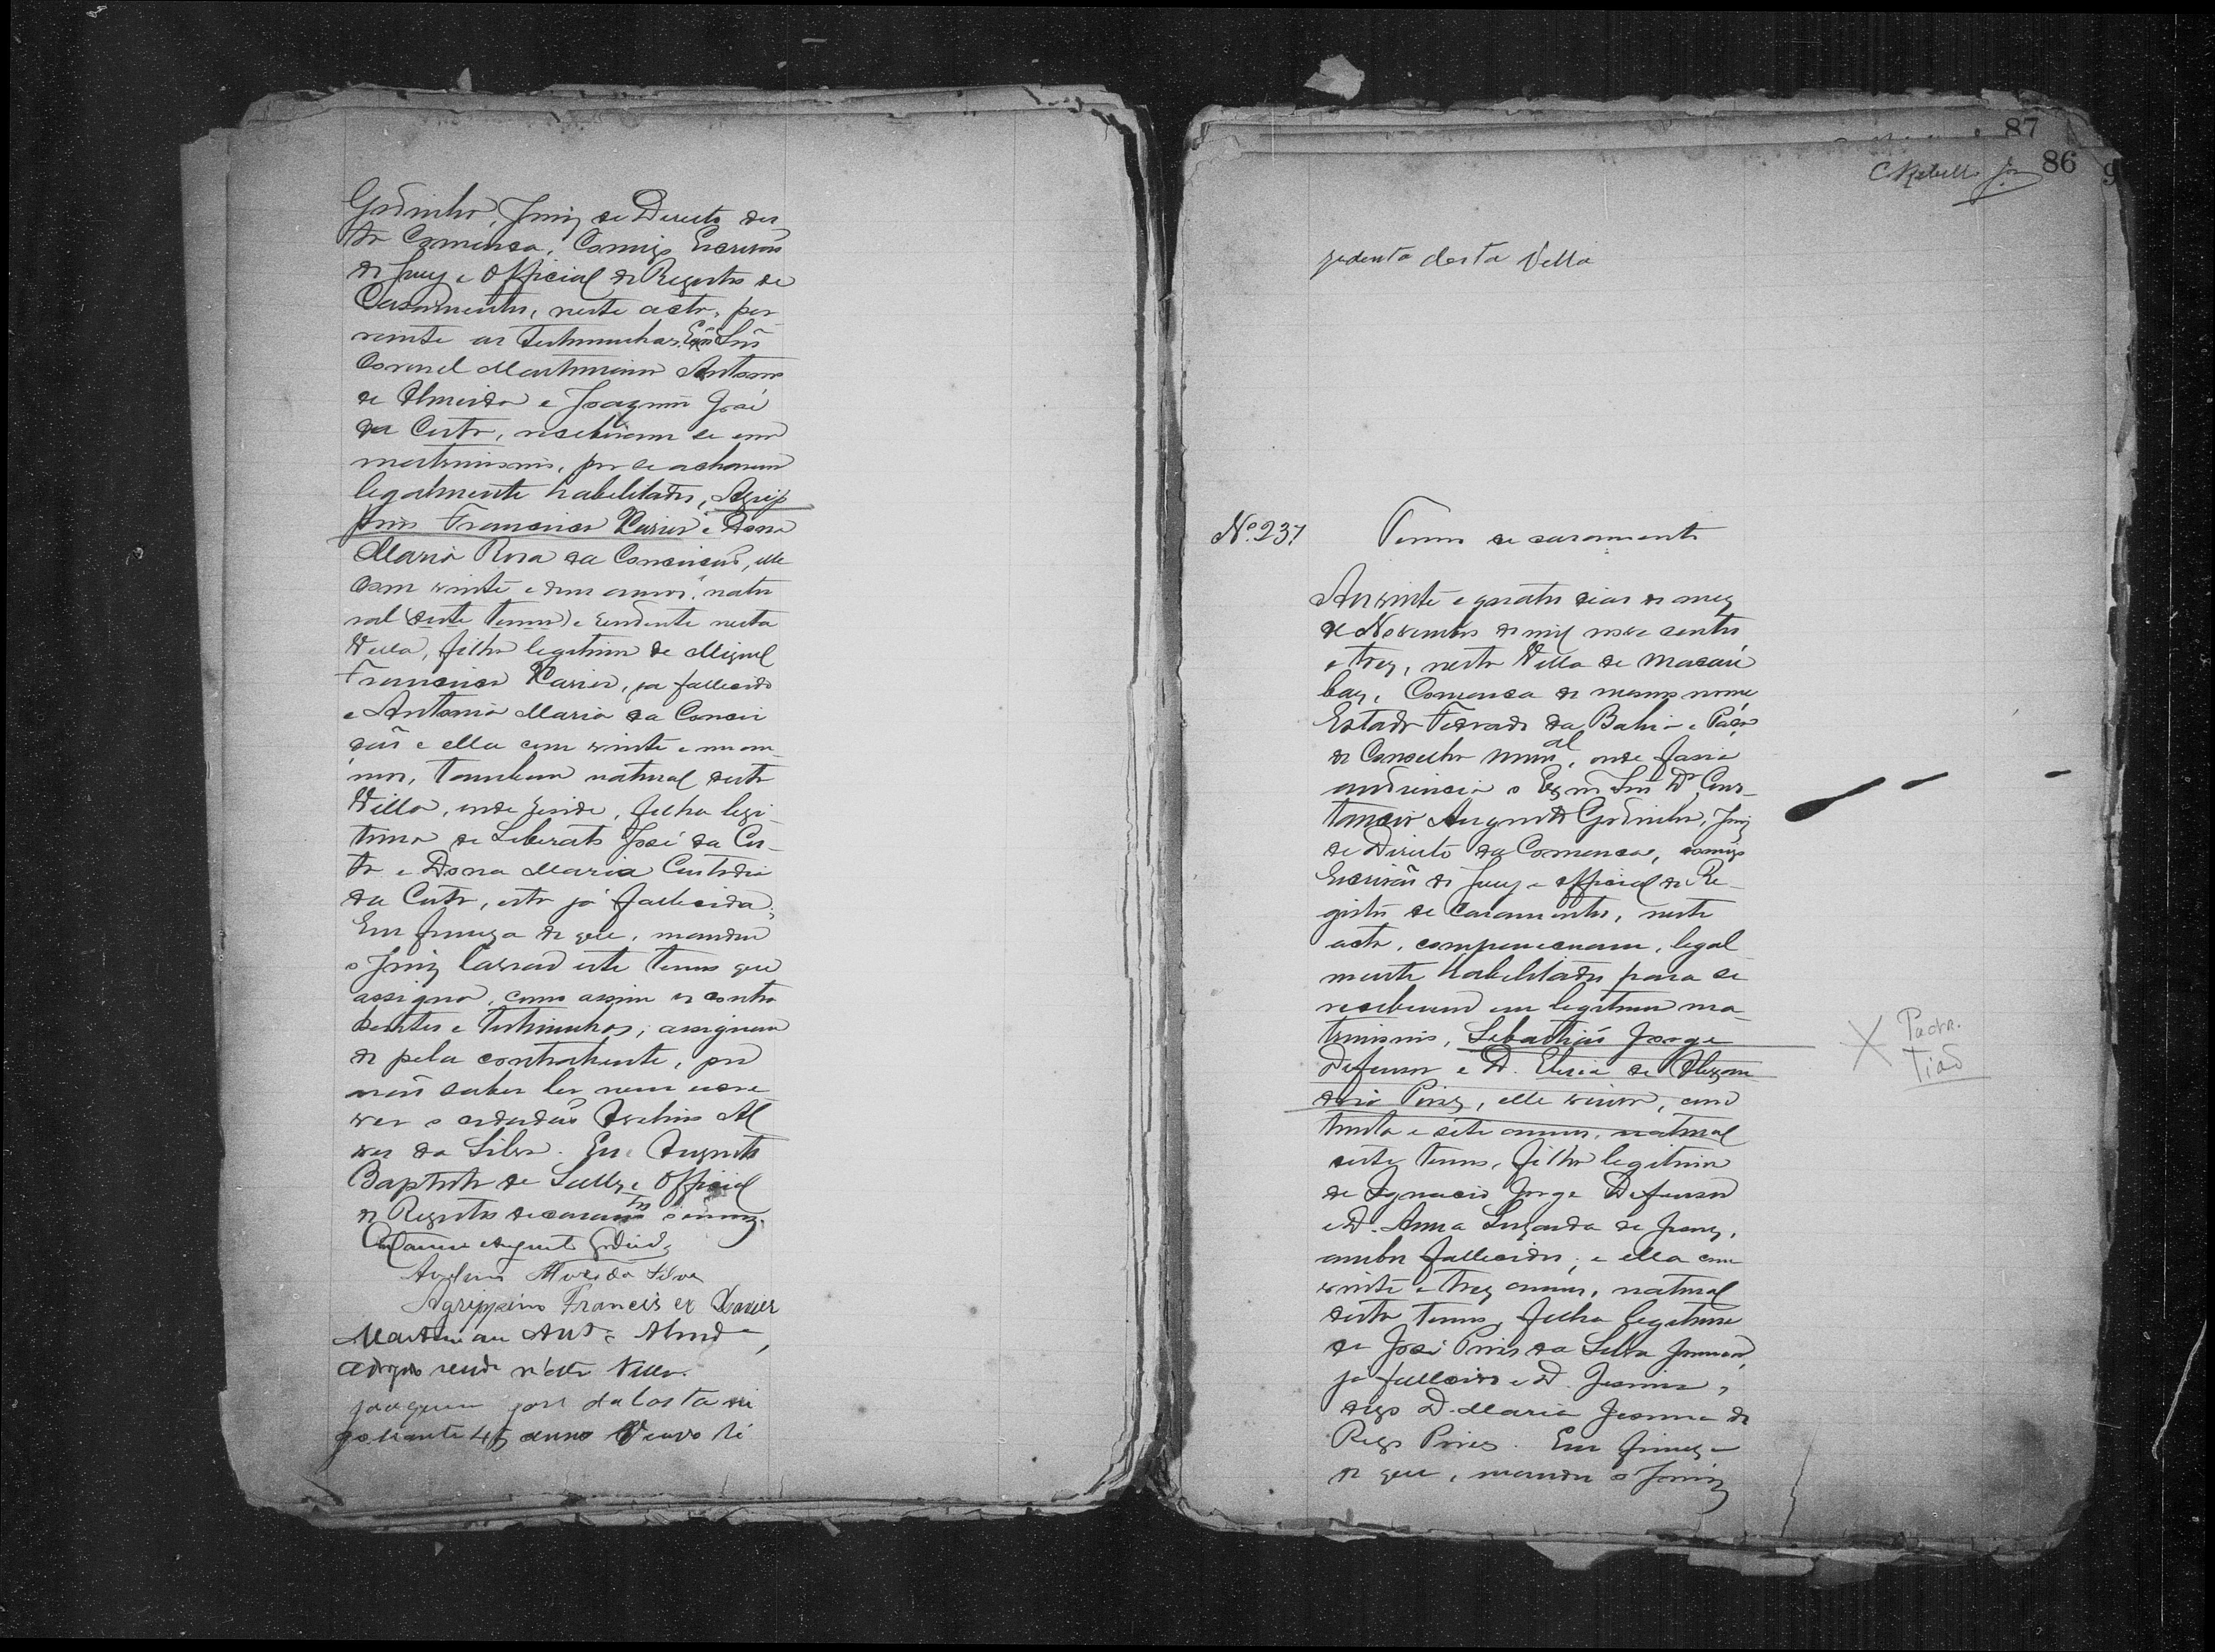 Godinho, Juiz de Direito des
ta Comarca, Comigo Escrivão
de Jury e Official de Registro de
Casamentos, neste acto, per
rante as testemunhas Exm Snr
Coronel Martiniano Antonio
de Almeida e Joaquim José
da Costa, receberam se em
matrimonio, por se acharem
legalmente habilitados, Agrip
pino Francisco Xavier e Dona
Maria Rosa da Conceição, elle
com vinte e dous annos, natu
ral deste termo e residente nesta
Villa, filho legitimo de Miguel
Francisco Xavier, ja fallecido
e Antonia Maria da Concei
ção e ella com vinte e um an
nos, tambem natural desta
Villa, onde reside, filha legi
tima de Liberato José da Cos
ta e Dona Maria Custodia
da Costa, esta já fallecida;
Em firmeza de que, mandou
o Juiz lavrar este termo que
assigna, como assim os contra
hentes e testemunhas; assignan
do pela contrahente, por
não saber ler nem escre
ver o cidadão Avelino Al
ves da Silva. Eu Augusto
Baptista de Official
de Registro de casamtos
Constancio Augusto Godinho
Avelino Alves da Silva
Agrippino Francisco Xavier
Martiniano Anto Almda
reside n'esta Villa.
joaquim jose da Costa ne
gosiante 45 annos Viuvo
87
86
9
C Rebello Jor
zedente desta Villa
No. 237
Termo de casamento
Aos vinte e quatro dias do mez
de Novembro de mil nove centos
e trez, nesta Villa de Macaú
bas, Comarca do mesmo nome
Estado Federado da Bahia e Paço
do Conselho Munal, onde fasia
audiencia o Exmo Snr Dr Cons-
tancio Augusto Godinho, Juiz
de Direito da Comarca, comigo
Escrivão do Jury e official do Re-
gistro de casamentos, neste
acto, compareceram, legal
mente habilitados para se
receberem em legitimo ma
trimonio, Sebastião Jorge
Defensor e D. de Alexan
dria Pires, elle viuvo, com
trinta e sete annos, natural
deste termo, filho legitimo
de Ignacio Jorge Defensor
e D. Anna de Jesus,
ambos fallecidos; e ella com
vinte e trez annos, natural
deste termo, filha legitima
de José Pires da Silva
já fallecido e D. Joanna,
digo D. Maria Joanna do
Rego Pires. Em firmeza
de que, mandou o Juiz
X
Tião